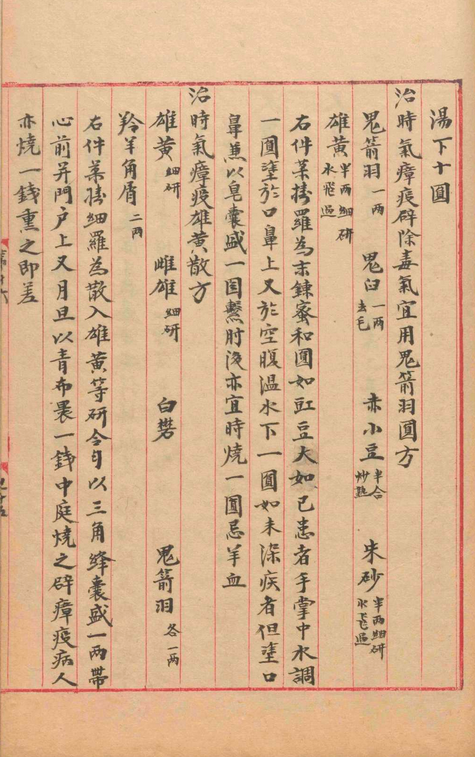 湯下十圓
治時氣瘴疫辟除毒氣宜用鬼箭羽圓方
鬼箭羽一兩 鬼臼一兩去毛 赤小豆半合炒熟 朱砂半兩細研水飛過
雄黄半兩細研水飛過
右件藥擣羅為末鍊蜜和圓如豇豆大如已患者手掌中水調
一圓塗於口鼻上又於空腹温水下一圓如未染疾者但塗口
鼻兼以皂囊盛一圓繫肘後亦宜時燒一圓忌羊血
治時氣瘴疫雄黄散方
雄黄細研 雌雄細研 白礬 鬼箭羽各一兩
羚羊角屑二兩
右件藥擣細羅為散入雄黄等研令勻以三角絳囊盛一兩帶
心前并門户上又月旦以青布裹一錢中庭燒之辟瘴疫病人
亦燒一錢熏之即差